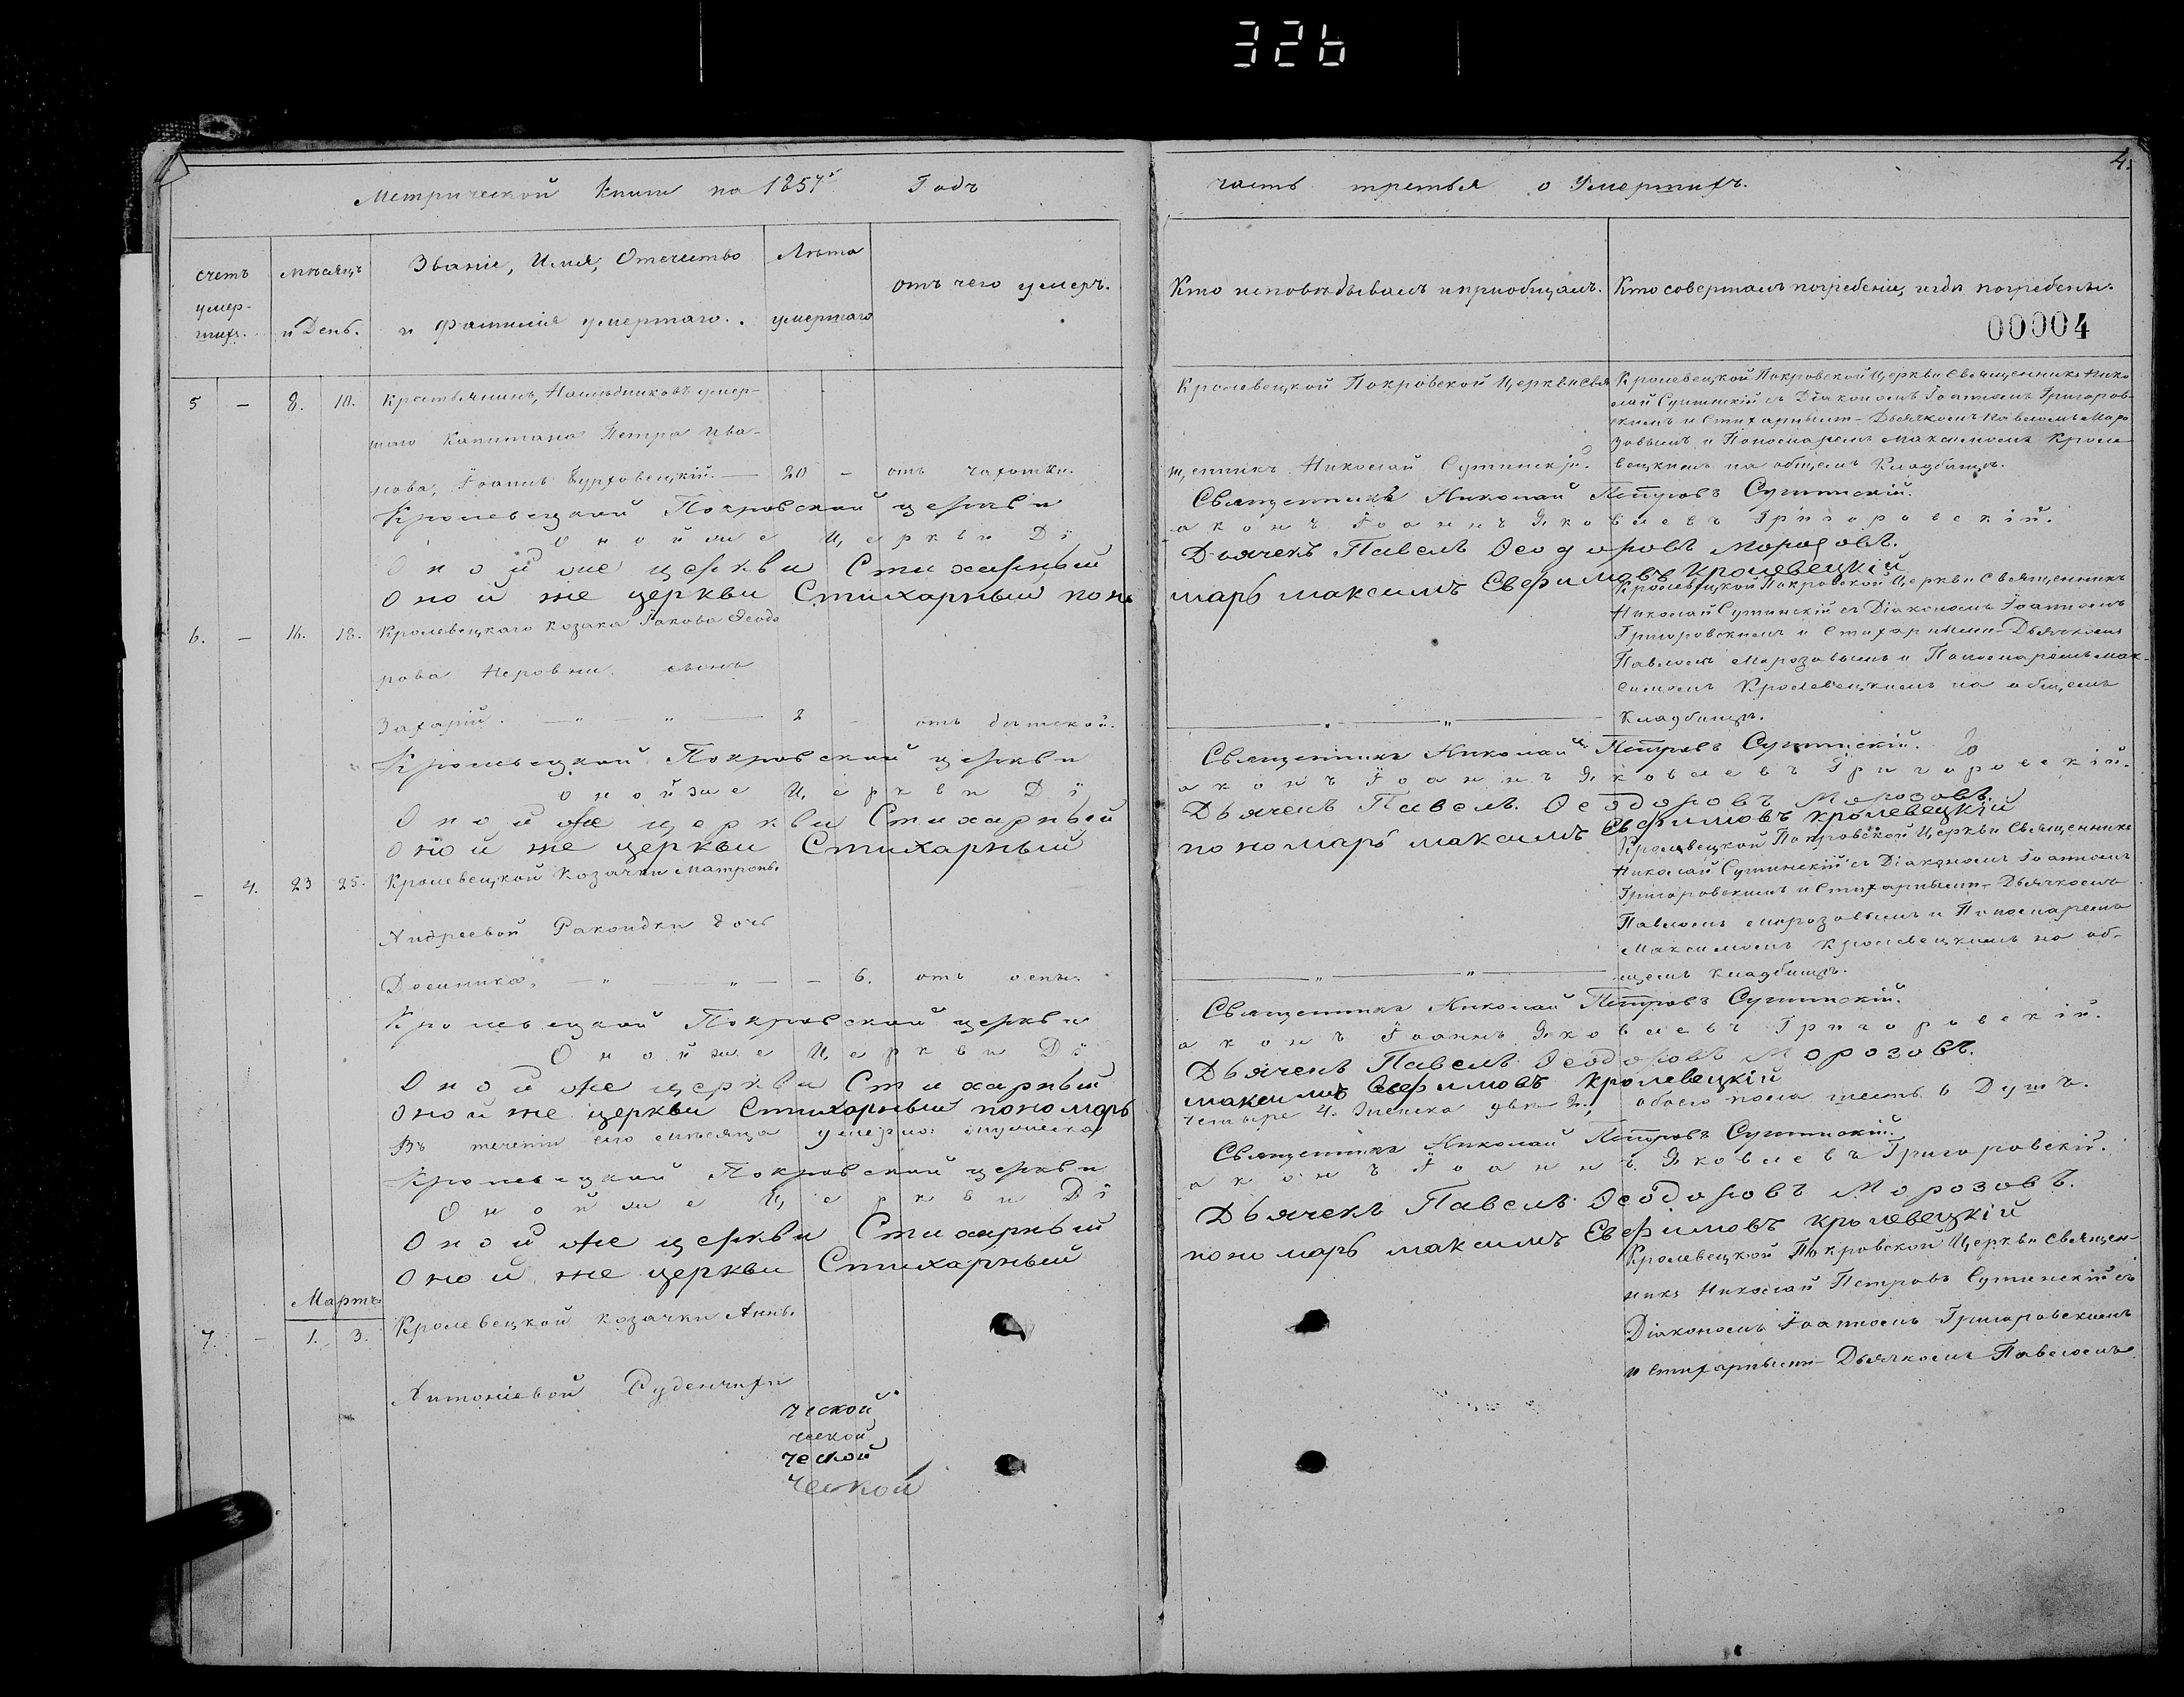 326
4.
Метрической Книги на 1857й Годъ
часть третья о Умершихъ.
счетъ умерших.
мѣсяцъ и День.
Званіе, Имя, Отечество и Фамилія умершаго.
Лѣта умершаго
отъ чего умеръ.
Кто исповѣдывалъ и пріобщалъ.
Кто совершалъ погребеніе, и гдѣ погребены.
00004
5 — 8. 10. Крестьянинъ, Наслѣдниковъ умер-
шаго Капитана Петра Ива-
нова, Іоаннъ — 20 — отъ чахотки.
Кролевецкой Покровской Церкви Свя
щенникъ Николай Сутинскій.
Кролевецкой Покровской Церкви Священникъ Нико
лай Сутинскій съ Діакономъ Іоанномъ Григоров-
скимъ и Стихарнымъ-Дьячкомъ Павломъ Моро
зовымъ и Пономаремъ Максимомъ Кроле-
вецкимъ на общемъ Кладбищѣ.
Кролевецкой Покровской церкви Священникъ Николай Петровъ Сутинскій.
Оной же Церкви Діаконъ Іоаннъ Яковлевъ Григоровскій.
Оной же церкви Стихарный Дьячекъ Павелъ Ѳеодоровъ Морозовъ.
Оной же церкви Стихарный поно марь максимъ Евфимовъ Кролевецкій
6. — 16. 18. Кролевецкаго Козака Іакова Ѳеодо
рова Неровни сынъ
Захарій. — " — " — 2 — отъ дѣтской.
— " — " —
Кролевецкой Покровской Церкви Священникъ
Николай Сутинскій съ Діакономъ Іоанномъ
Григоровскимъ и Стихарнымъ-Дьячкомъ
Павломъ Морозовымъ и Пономаремъ Мак-
симомъ Кролевецкимъ на общемъ
Кладбищѣ.
Кролевецкой Покровской церкви Священникъ Николай Петровъ Сутинскій.
Оной же Церкви Діаконъ Іоаннъ Яковлевъ Григоровскій.
Оной же церкви Стихарный Дьячекъ Павелъ Ѳеодоровъ Морозовъ.
Оной же церкви Стихарный пономарь максимъ Евфимовъ кролевецкій
— 4. 23 25. Кролевецкой Козачки Матроны
Андреевой Ракоидки дочь
Домника, — " — " — 6. отъ оспы.
— " — " —
Кролевецкой Покровской Церкви Священникъ
Николай Сутинскій съ Діакономъ Іоанномъ
Григоровскимъ и Стихарнымъ-Дьячкомъ
Павломъ Морозовымъ и Пономаремъ
Максимомъ Кролевецкимъ на об-
щемъ кладбищѣ.
Кролевецкой Покровской церкви Священникъ Николай Петровъ Сутинскій.
Оной же Церкви Діаконъ Іоаннъ Яковлевъ Григоровскій.
Оной же церкви Стихарный Дьячекъ Павелъ Ѳеодоровъ Морозовъ.
Оной же церкви Стихарный пономарь максимъ Евфимовъ кролевецкій
Въ теченіи сего мѣсяца умерло: мужеска четыре 4. Женска двѣ 2., обоего пола шесть 6 Душъ.
Кролевецкой Покровской церкви Священникъ Николай Петровъ Сутинскій.
Оной же Церкви Діаконъ Іоаннъ Яковлевъ Григоровскій.
Оной же церкви Стихарный Дьячекъ Павелъ Ѳеодоровъ Морозовъ.
Оной же церкви Стихарный пономарь максимъ Евфимовъ кролевецкій
Мартъ.
7. — 1. 3. Кролевецкой козачки Анны
Антоніевой Руденчихи
Кролевецкой Покровской Церкви Священ-
никъ Николай Петровъ Сутинскій съ
Діакономъ Іоанномъ Григоровскимъ
и Стихарнымъ-Дьячкомъ Павломъ
ческой
ческой
ческой
ческой